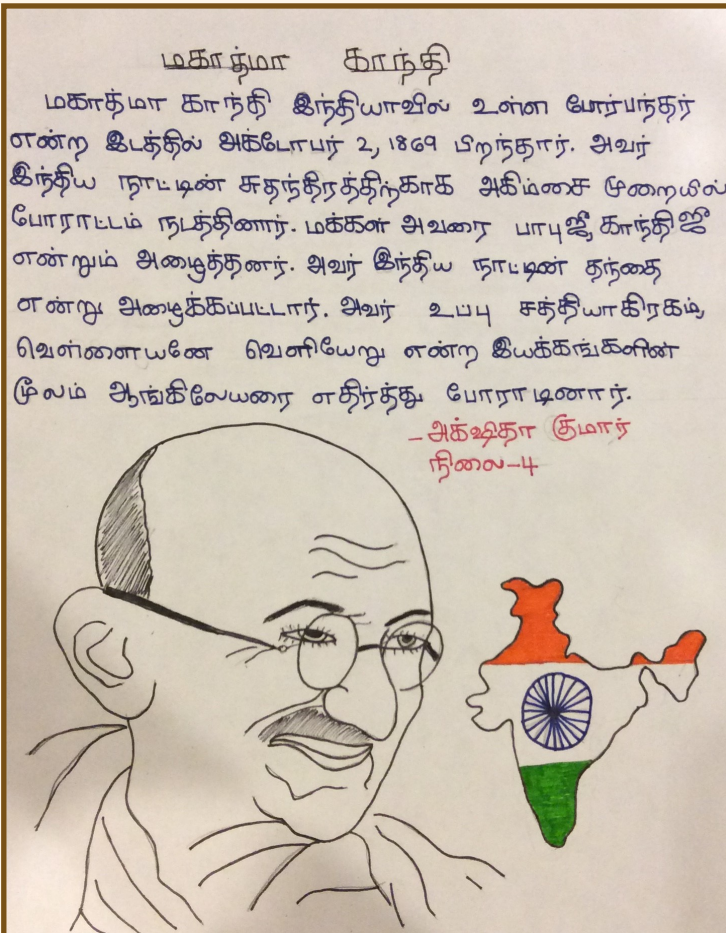 மகாத்மா காந்தி
மகாத்மா காந்தி இந்தியாவில் உள்ள போர்பந்தர்
என்ற இடத்தில் அக்டோபர் 2, 1869 பிறந்தார். அவர்
இந்திய நாட்டின் சுதந்திரத்திற்காக அகிம்சை முறையில்
போராட்டம் நடத்தினார். மக்கள் அவரை பாபுஜீ, காந்திஜீ
என்றும் அழைத்தனர். அவர் இந்திய நாட்டின் தந்தை
என்று அழைக்கப்பட்டார். அவர் உப்பு சத்தியாகிரகம்,
வெள்ளையனே வெளியேறு என்ற இயக்கங்களின்
மூலம் ஆங்கிலேயரை எதிர்த்து போராடினார்.
-அக்ஷிதா குமார்
நிலை-4